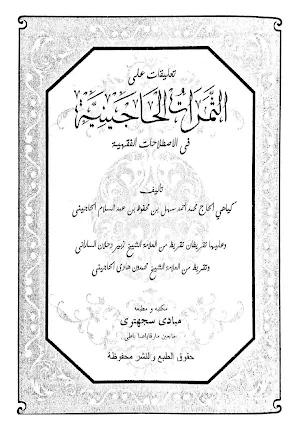 تعليقات على
الثمرات الحاجينية
فى الاصطلاحات الفقهية
تأليف
كياهي الحاج محمد أحمد سهل بن محفوظ بن عبد السلام الحاجيني
وعليها تقريظان تقريظ من العلامة الشيخ زبير دحلان الساراني
وتقريظ من العلامة الشيخ محمدون هادي الحاجيني
مكتبه و مطبعة
مبادى سجهترى
مارقاياصا باطى
حقوق الطبع والنشر محفوظة